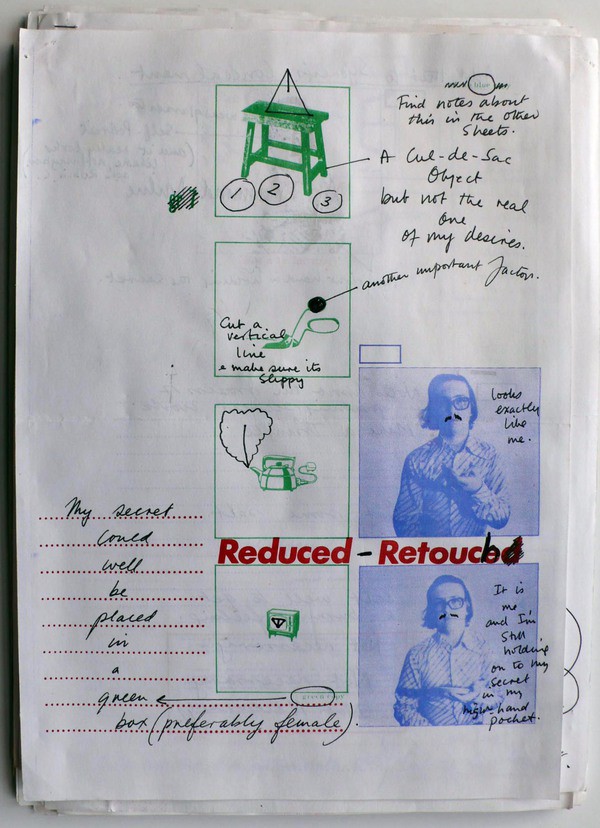 blue
Find notes about
this in the other
Sheets.
A Cul-de-Sac
Object
but not the real
one
of my desires.
1 2 3
another important factor.
Cut a
vertical
line
& make sure its
Slippy
looks
exactly
like
me.
My secret
could
well
be
placed
in
a
green
box (preferably female).
Reduced - Retouched
It is
me
and I'm
still
holding
on to my
secret
in my
right hand
pocket.